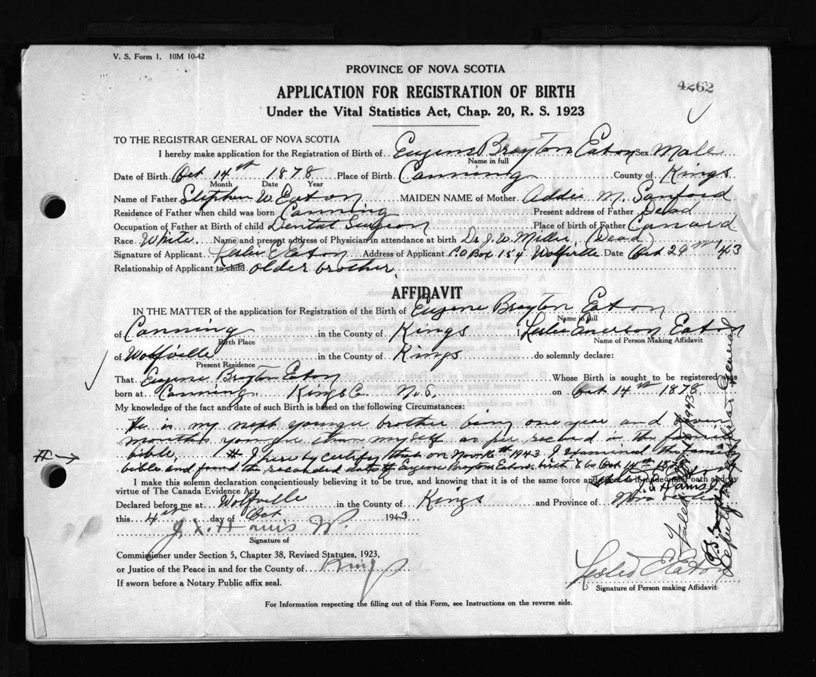 V. S. Form 1. 10M 10-42
PROVINCE OF NOVA SCOTIA
4262
APPLICATION FOR REGISTRATION OF BIRTH
Under the Vital Statistics Act, Chap. 20, R. S. 1923
TO THE REGISTRAR GENERAL OF NOVA SCOTIA
I hereby make application for the Registration of Birth of Eugene Brayton Eaton Sex Male
Name in full
Date of Birth Oct 14th 1878 Place of Birth Canning County of Kings
Month Date Year
Name of Father Stephen W. Eaton MAIDEN NAME of Mother Addie M. Sanford
Residence of Father when child was born Canning Present address of Father Dead
Occupation of Father at Birth of child Dental Surgeon Place of birth of Father Canard
Race White Name and present address of Physician in attendance at birth Dr J. W. Miller (Dead)
Signature of Applicant Leslie E Eaton Address of Applicant P.O Box 154 Wolfville Date Oct 29 43
Relationship of Applicant to child older brother
AFFIDAVIT
IN THE MATTER of the application for Registration of the Birth of Eugene Brayton Eaton
Name in full
of Canning in the County of Kings Leslie Eaton
Birth Place Name of Person Making Affidavit
of Wolfville in the County of Kings do solemnly declare:
Present Residence
That Eugene Brayton Eaton Whose Birth is sought to be registered was
born at Canning Kings Co. N.S. on Oct 14th 1878
My knowledge of the fact and date of such Birth is based on the following Circumstances:
He is my next younger brother being one year and
months younger than myself as per record in the family
bible, # I hereby certify that on Nov 16th 1943 I examined the family
bible and found the recorded date of Eugene Brayton Eaton's birth to be Oct 14th 1878
# →
I make this solemn declaration conscientiously believing it to be true, and knowing that it is of the same force and effect as if made under oath and by
virtue of The Canada Evidence Act.
Declared before me at Wolfville in the County of Kings and Province of Nova Scotia
this 4th day of Oct 1943
Signature of
Commissioner under Section 5, Chapter 38, Revised Statutes, 1923,
or Justice of the Peace in and for the County of Kings
If sworn before a Notary Public affix seal.
Leslie E Eaton
Signature of Person making Affidavit
For Information respecting the filling out of this Form, see Instructions on the reverse side.
Deputy Registrar General